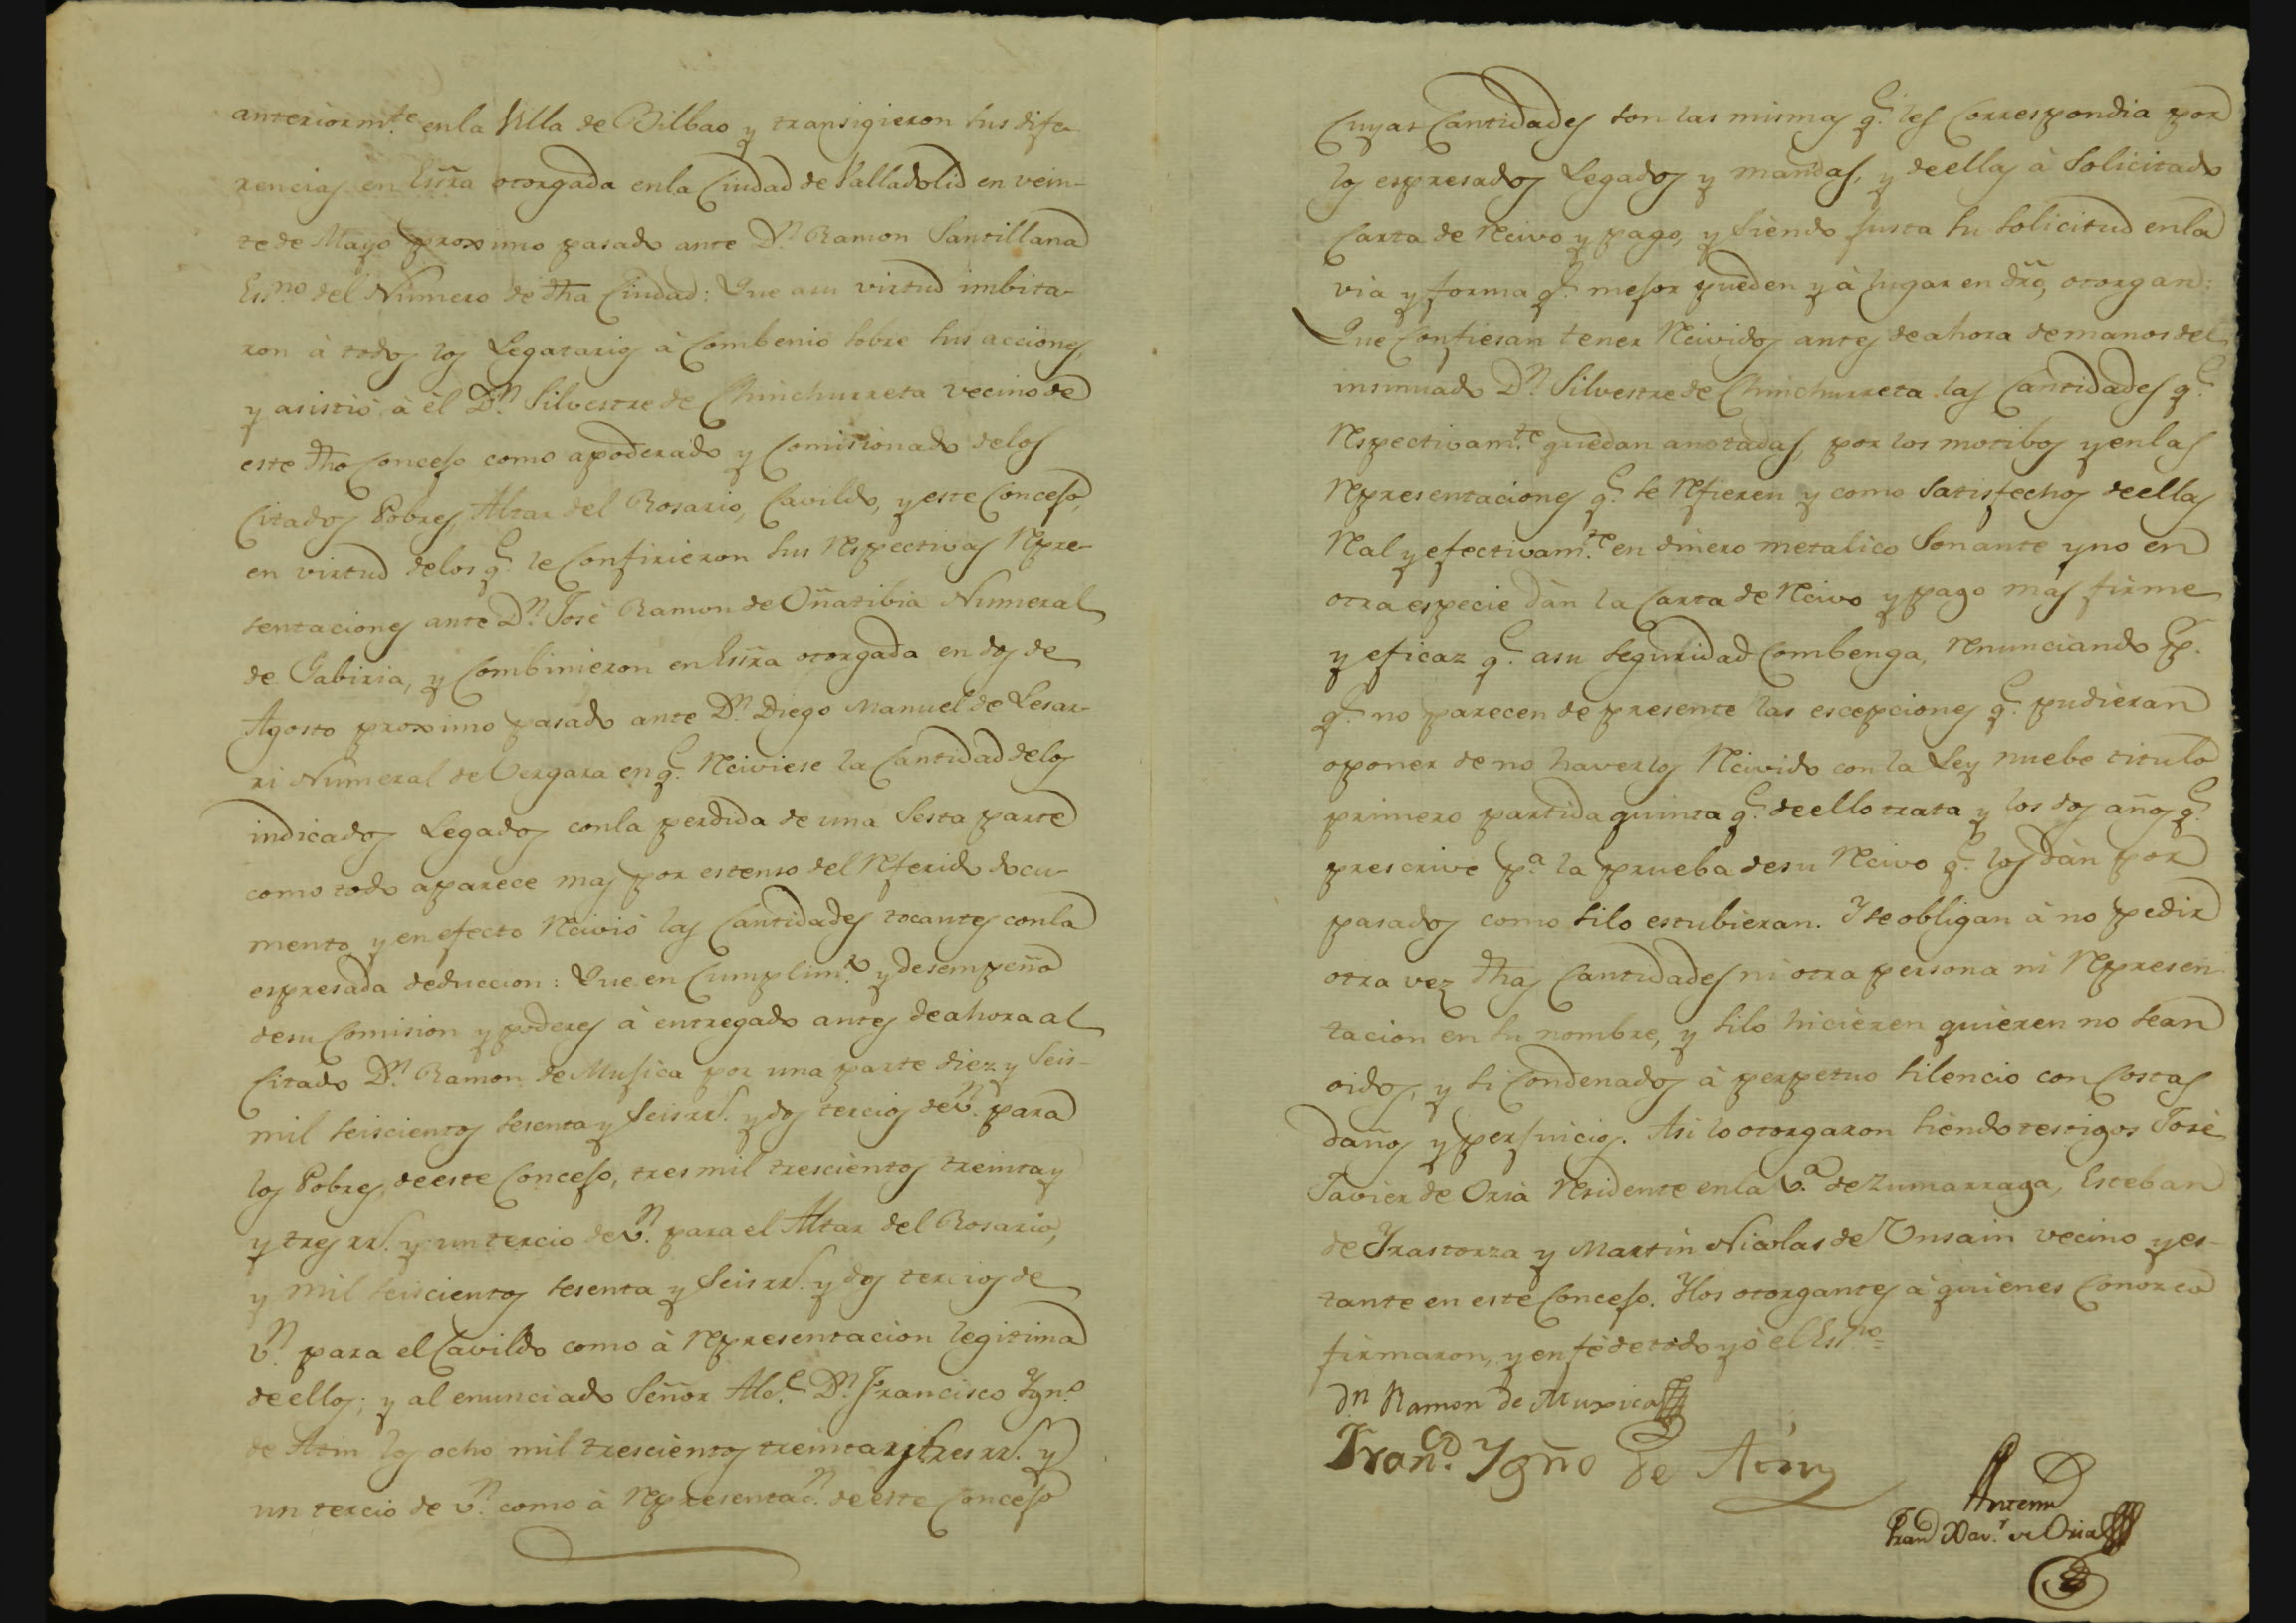 anteriormte. en la Villa de Bilbao y transigieron sus dife-
rencias en Essra otorgada en la Ciudad de Valladolid en vein-
te de Mayo proximo pasado ante Dn. Ramon Santillana
Essno. del Número de dha Ciudad: Que a su virtud imbita-
ron à todos los Legatarios à Combenio sobre sus acciones,
y asistió à èl Dn. Silvestre de Chinchurreta vecino de
este dho Concejo como apoderado y Comisionado delos
Citados Pobres, Altar del Rosario, Cavildo, y este Concejo,
en virtud delos q.e le Confirieron sus Respectivas Repre-
sentaciones ante Dn. José Ramon de Oñatibia Numeral
de Gabiria, y Combinieron en Essra otorgada en dos de
Agosto proximo pasado ante Dn. Diego Manuel de Lesar-
ri Numeral de Vergara en q.e Reciviese la Cantidad delos
indicados Legados conla perdida de una Sesta parte
como todo aparece mas por estenso del Referido docu-
mento y en efecto Recivió las Cantidades tocantes conla
espresada deduccion: Que en Cumplimto. y desempeño
desu Comision y poderes à entregado antes deahora al
Citado Dn. Ramon de Musica por una parte diez y Seis-
mil seiscientos sesenta y Seis rrs. y dos tercios de vn. para
los Pobres, de este Concejo, tres mil trescientos treinta y
y tres rrs. y un tercio de vn. para el Altar del Rosario,
y mil seiscientos sesenta y Seis rrs. y dos tercios de
vn. para el Cavildo como à Representacion legitima
deellos; y al enunciado Señor Alce. Dn. Francisco Ygno.
de Atin los ocho mil trescientos treinta y tres rrs. y
un tercio de vn. como à Representacn. de este Concejo
Cuyas Cantidades son las mismas q.e les Correspondia por
los espresados Legados y mandas, y deellas à Solicitado
Carta de Recivo y pago, y siendo justa su solicitud enla
via y forma q.e mejor pueden y à lugar en dro, otorgan:
Que Confiesan tener Recividos antes deahora demanos del
insinuado Dn. Silvestre de Chinchurreta las Cantidades q.e
Respectivamte. quedan anotadas, por los motibos y enlas
Representaciones q.e se Refieren y como Satisfechos deellas
Real y efectivamte. en dinero metalico Sonante y no en
otra especie dàn la Carta de Recivo y pago mas firme
y eficaz q.e asu seguridad Combenga, Renunciando p.
q.e no parecen de presente las escepciones q.e pudieran
oponer de no haverlos Recivido con la Ley nuebe titulo
primero partida quinta q.e deello trata y los dos años q.e
prescrive pa. la prueba desu Recivo q.e los dàn por
pasados como silo estubieran. Y se obligan à no pedir
otra vez dhas Cantidades ni otra persona ni Represen-
tacion en su nombre, y silo hicieren quieren no sean
oidos, y si Condenados à perpetuo silencio con Costas
daños y perjuicios. Asi lo otorgaron siendo testigos José
Javier de Oria Residente enla va. de Zumarraga, Esteban
de Yrastorza y Martin Nicolas de Unsain vecino y es-
tante en este Concejo. Y los otorgantes à quienes Conozco
firmaron, y en fè de todo yo el Essno.
Dn Ramon de Muxica
Franco. Ygno de Atin
Antemi
Franco Xavr. de Oria